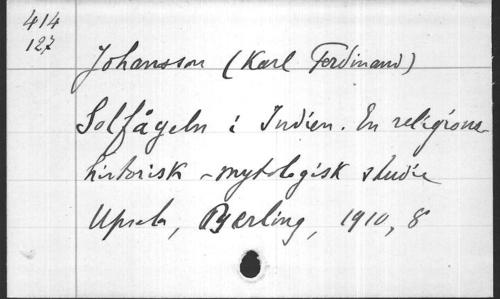 414
127
Johansson (Karl Ferdinand)
Solfågeln i Indien. En religions-
historisk-mytologisk studie
Upsala, Berling, 1910, 8